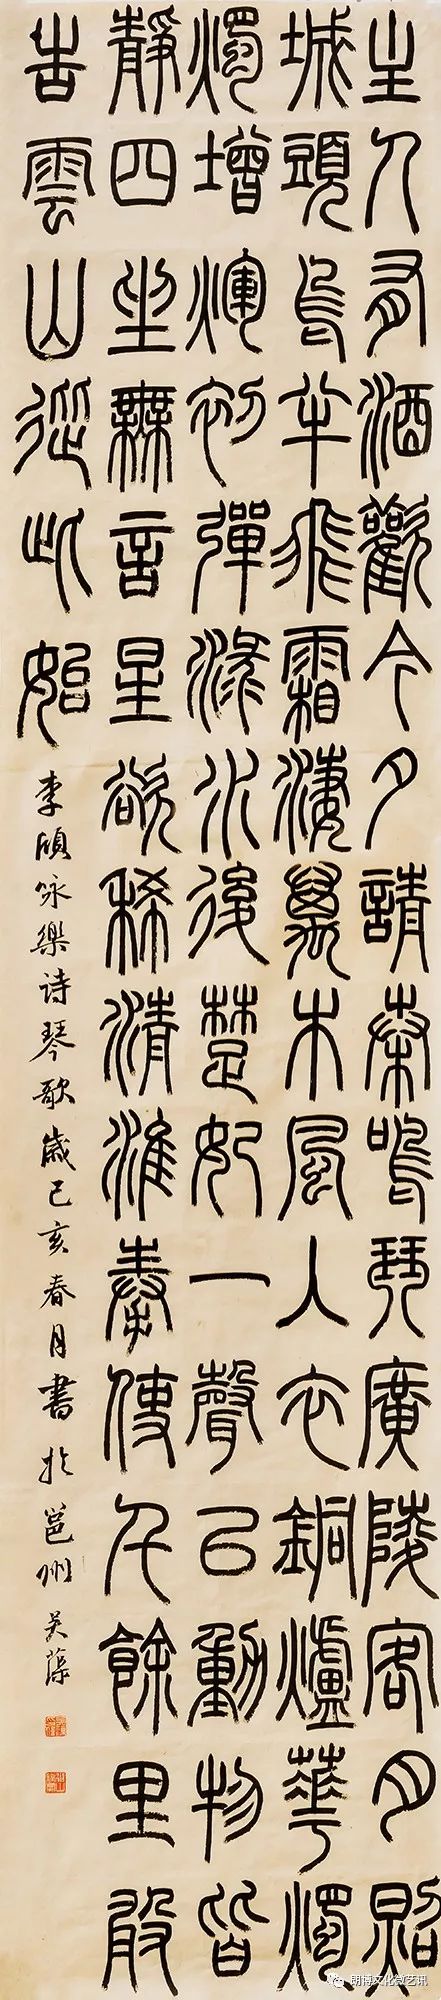 主人有酒歡今夕請奏鳴琴廣陵客月照
城頭烏半飛霜淒萬木風入衣銅爐華燭
燭增輝初彈淥水後楚妃一聲已動物皆
靜四坐無言星欲稀清淮奉使千餘里敢
告雲山從此始
李頎咏樂诗琴歌歲己亥春月書於邕州吴
朗博文化微艺讯